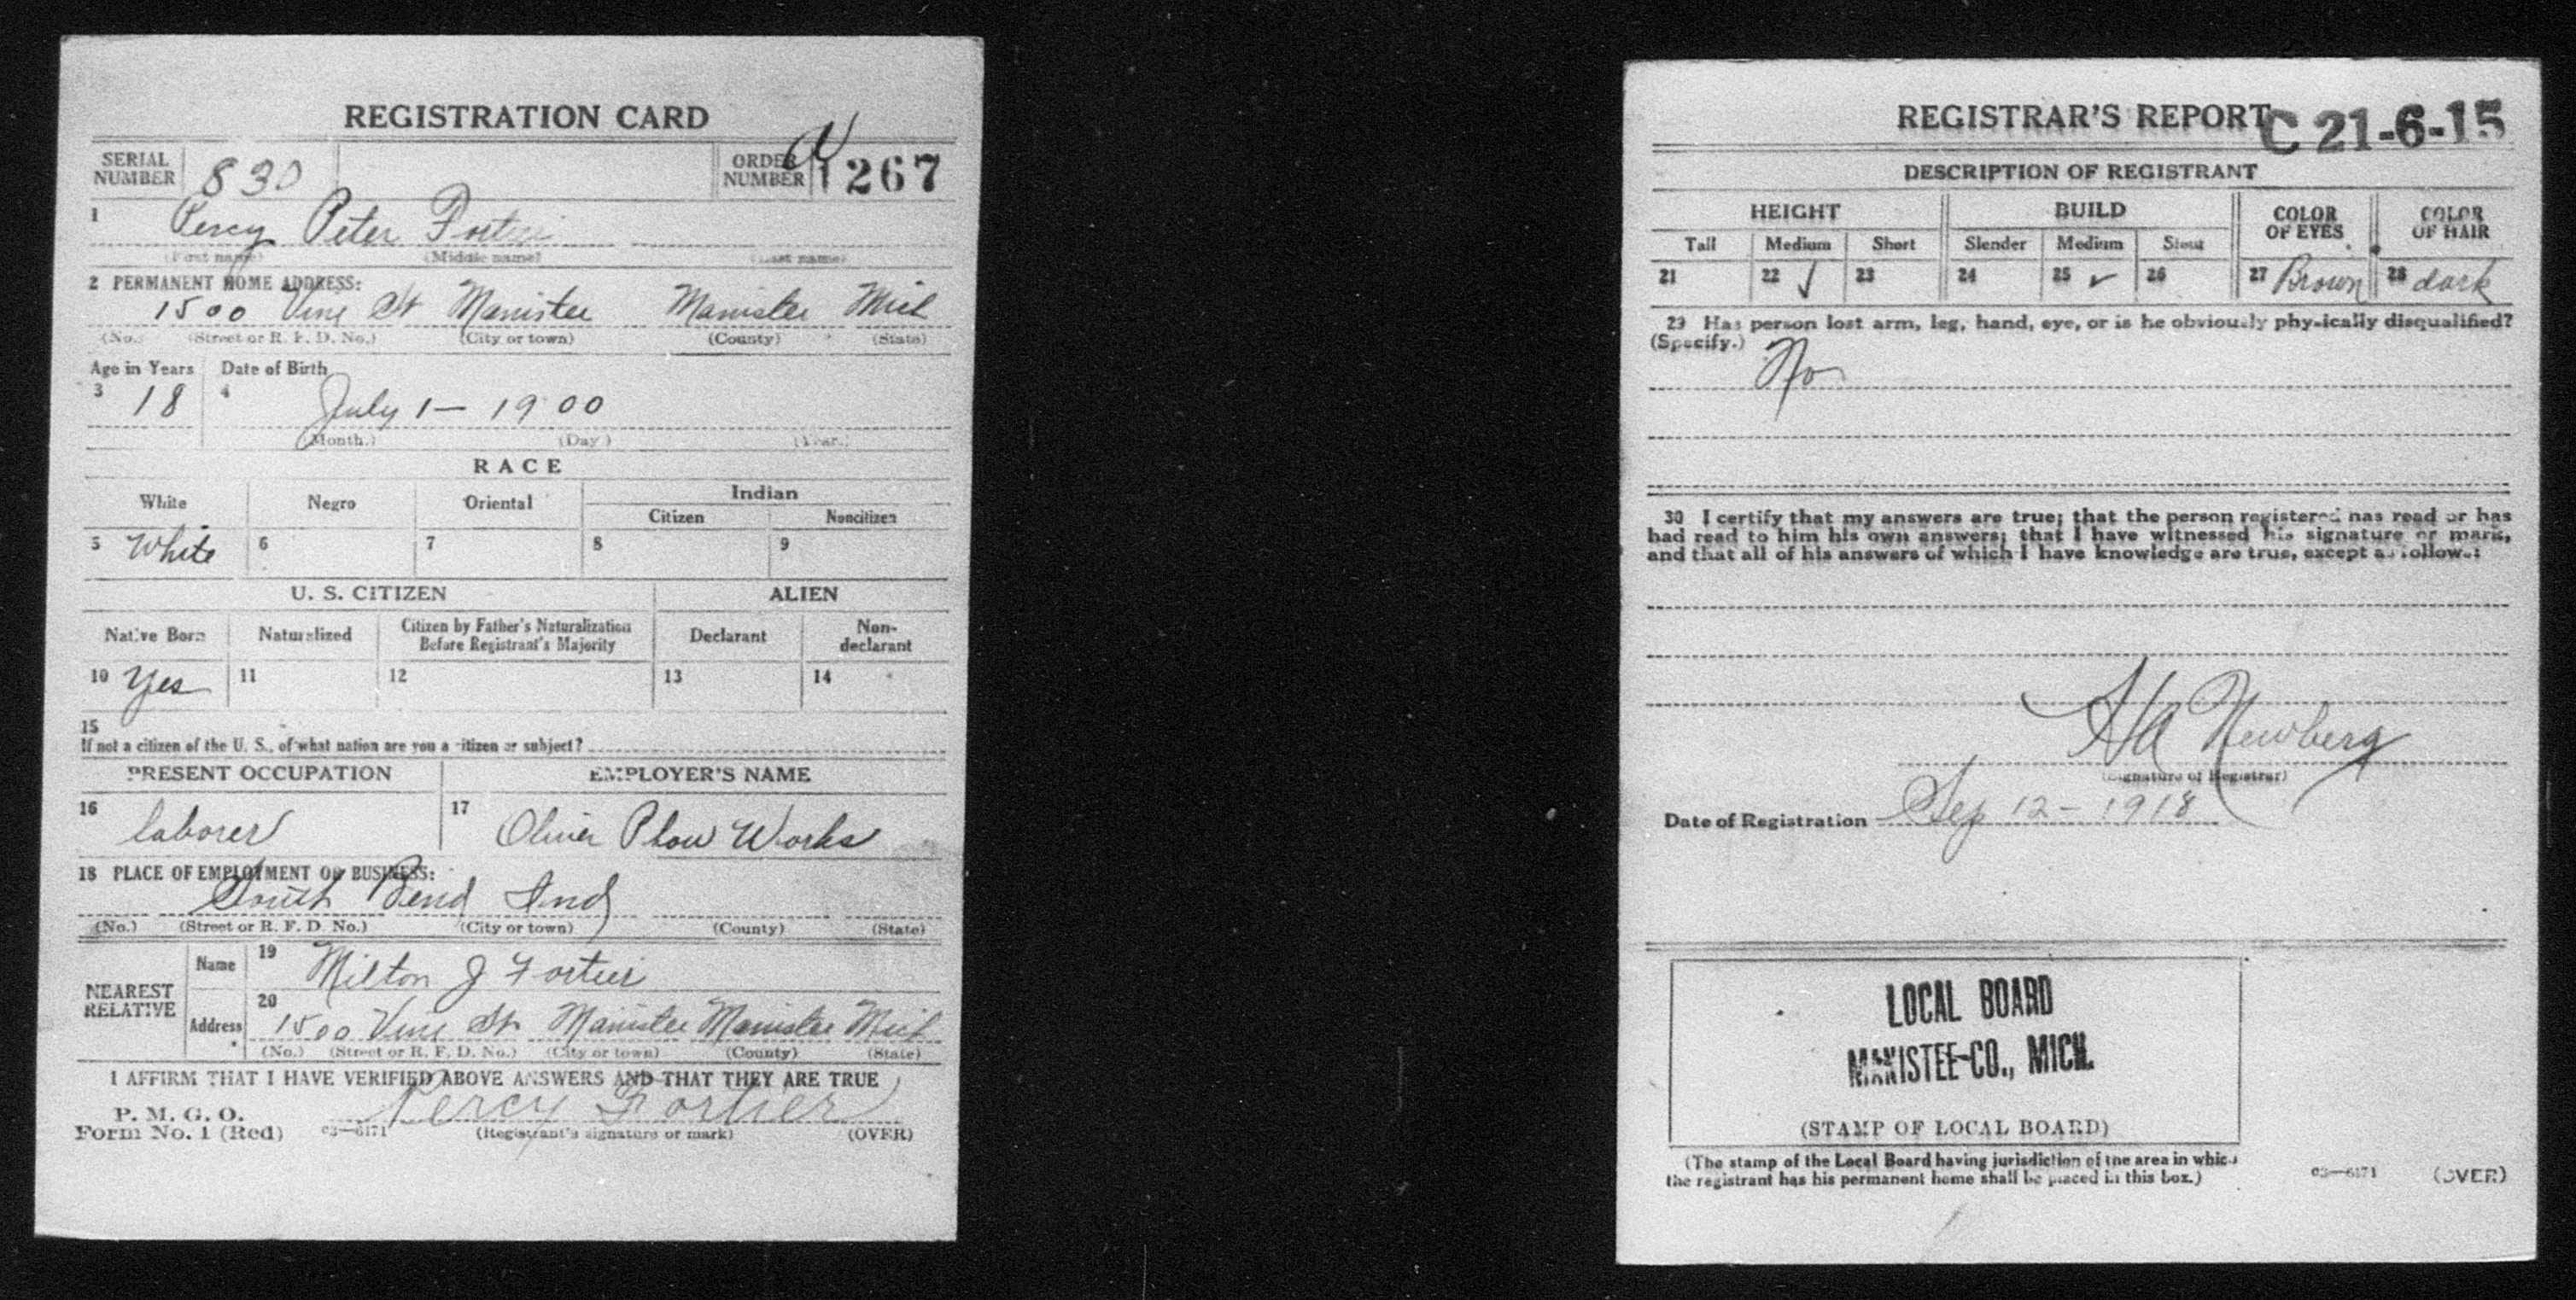 REGISTRATION CARD
SERIAL NUMBER 830 ORDER NUMBER 1267
1 Percy Peter Fortier
(First name) (Middle name) (Last name)
2 PERMANENT HOME ADDRESS:
1500 Vine St Manistee Manistee Mich
(No.) (Street or R. F. D. No.) (City or town) (County) (State)
Age in Years Date of Birth
3 18 4 July 1 - 1900
(Month.) (Day) (Year.)
RACE
White Negro Oriental Indian
Citizen Noncitizen
5 White 6 7 8 9
U. S. CITIZEN ALIEN
Native Born Naturalized Citizen by Father's Naturalization Before Registrant's Majority Declarant Non-declarant
10 Yes 11 12 13 14
15
If not a citizen of the U. S., of what nation are you a citizen or subject?
PRESENT OCCUPATION EMPLOYER'S NAME
16 laborer 17 Oliver Plow Works
18 PLACE OF EMPLOYMENT OR BUSINESS:
South Bend Ind
(No.) (Street or R. F. D. No.) (City or town) (County) (State)
NEAREST RELATIVE
Name 19 Milton J Fortier
Address 20 1500 Vine St Manistee Manistee Mich
(No.) (Street or R. F. D. No.) (City or town) (County) (State)
I AFFIRM THAT I HAVE VERIFIED ABOVE ANSWERS AND THAT THEY ARE TRUE
P. M. G. O. Percy Fortier
Form No. 1 (Red) 03—6171 (Registrant's signature or mark) (OVER)
REGISTRAR'S REPORT C 21-6-15
DESCRIPTION OF REGISTRANT
HEIGHT BUILD COLOR OF EYES COLOR OF HAIR
Tall Medium Short Slender Medium Stout
21 22 ✓ 23 24 25 ✓ 26 27 Brown 28 dark
29 Has person lost arm, leg, hand, eye, or is he obviously physically disqualified?
(Specify.) No
30 I certify that my answers are true; that the person registered has read or has
had read to him his own answers; that I have witnessed his signature or mark,
and that all of his answers of which I have knowledge are true, except as follows:
Newberg
(Signature of Registrar)
Date of Registration Sep 12 - 1918
LOCAL BOARD
MANISTEE CO., MICH.
(STAMP OF LOCAL BOARD)
(The stamp of the Local Board having jurisdiction of the area in which
the registrant has his permanent home shall be placed in this box.)
03—6171 (OVER)